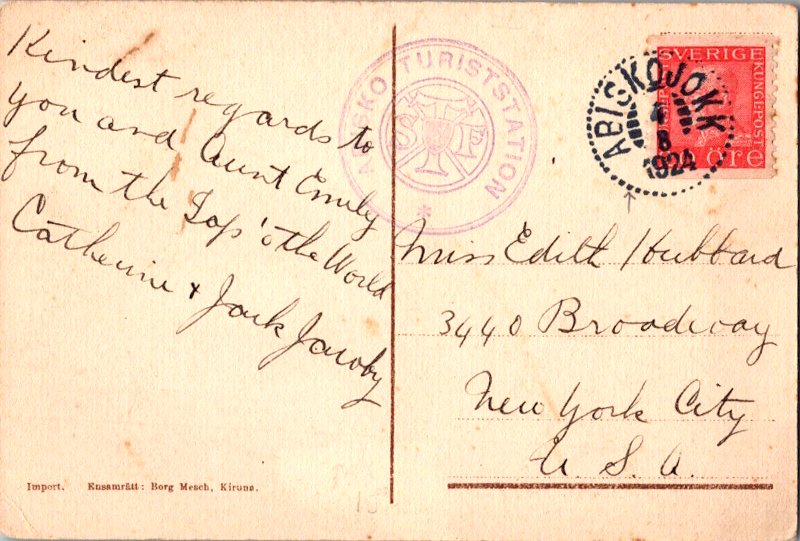 Kindest regards to
you and Aunt Emily
from the Top 'o the World
Catherine & Jack Jacoby
ABISKO TURISTSTATION
*
STF
ABISKOJOKK
4
8
1924
SVERIGE
KUNGL:POST
ÖRE
Miss Edith Hubbard
3440 Broadway
New York City
U. S. A.
Import. Ensamrätt: Borg Mesch, Kiruna.